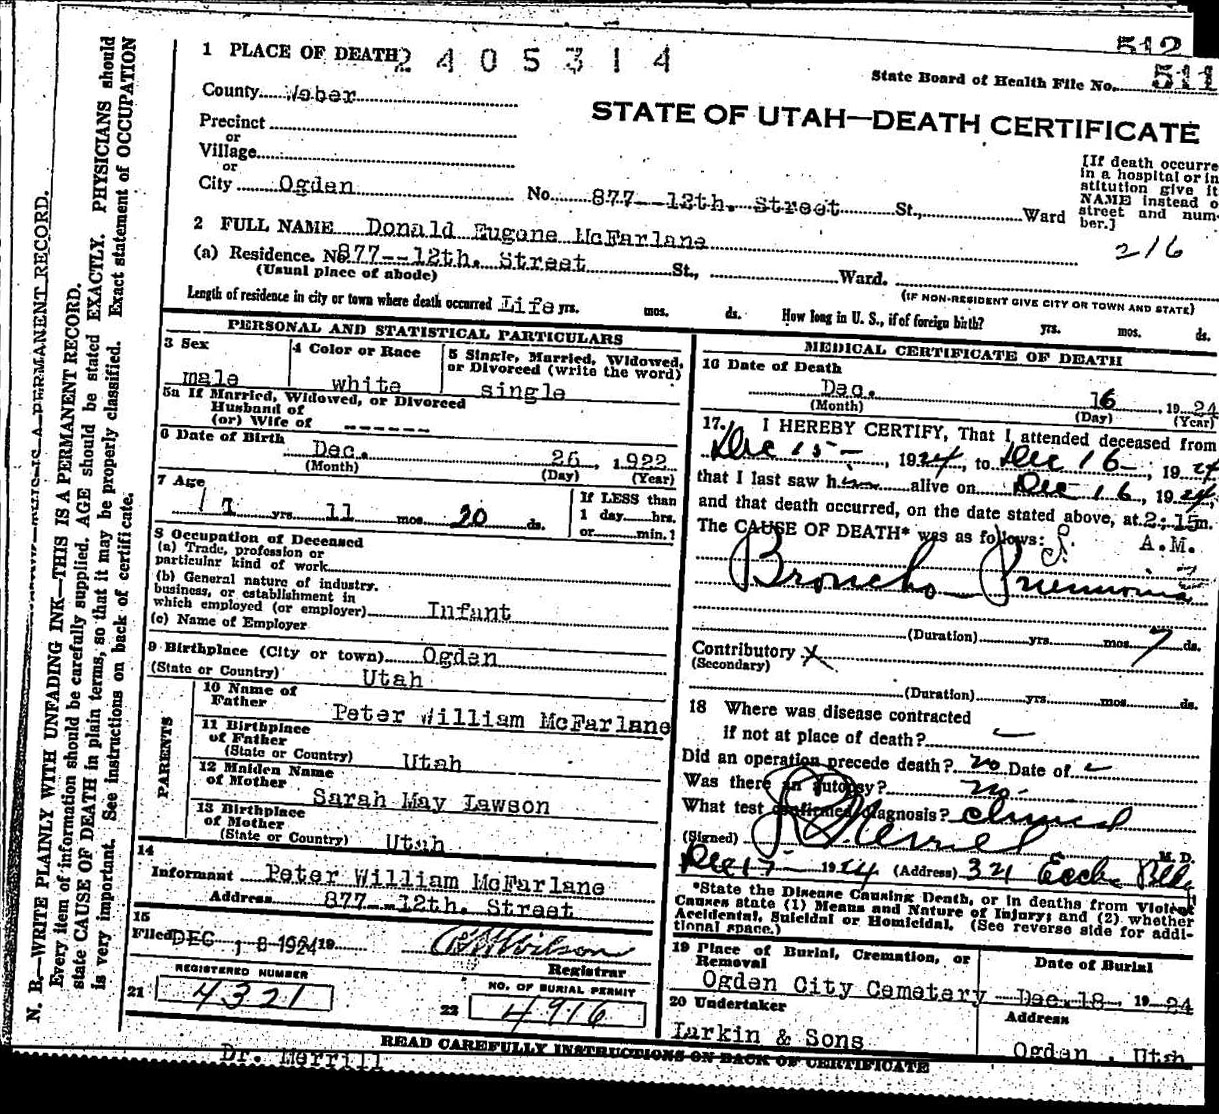 512
1 PLACE OF DEATH 2405314
State Board of Health File No. 511
County Weber
STATE OF UTAH—DEATH CERTIFICATE
Precinct
or
Village
or
City Ogden No. 877--12th. Street St., Ward
[If death occurre
in a hospital or in
stitution give it
NAME instead o
street and num-
ber.]
216
2 FULL NAME Donald Eugene McFarlane
(a) Residence. No 877--12th. Street St., Ward.
(Usual place of abode) (IF NON-RESIDENT GIVE CITY OR TOWN AND STATE)
Length of residence in city or town where death occurred Life yrs. mos. ds. How long in U. S., if of foreign birth? yrs. mos. ds.
PERSONAL AND STATISTICAL PARTICULARS
3 Sex
male
4 Color or Race
white
5 Single, Married, Widowed,
or Divorced (write the word)
single
5a If Married, Widowed, or Divorced
Husband of
(or) Wife of ------
6 Date of Birth
Dec. 26, 1922
(Month) (Day) (Year)
7 Age
1 yrs. 11 mos. 20 ds.
If LESS than
1 day hrs.
or min.
8 Occupation of Deceased
(a) Trade, profession or
particular kind of work
(b) General nature of industry.
business, or establishment in
which employed (or employer) Infant
(c) Name of Employer
9 Birthplace (City or town) Ogden
(State or Country) Utah
PARENTS
10 Name of
Father Peter William McFarlane
11 Birthplace
of Father
(State or Country) Utah
12 Maiden Name
of Mother Sarah May Lawson
13 Birthplace
of Mother
(State or Country) Utah
14
Informant Peter William McFarlane
Address 877--12th. Street
15
Filed DEC 18 1924 19 Wilson
Registrar
REGISTERED NUMBER
21 4321
NO. OF BURIAL PERMIT
22 4916
MEDICAL CERTIFICATE OF DEATH
16 Date of Death
Dec. 16, 1924
(Month) (Day) (Year)
17. I HEREBY CERTIFY, That I attended deceased from
Dec 15-, 1924, to Dec 16-, 1924,
that I last saw him alive on Dec 16, 1924,
and that death occurred, on the date stated above, at 2:15 m.
The CAUSE OF DEATH* was as follows: A.M.
Broncho Pneumonia
(Duration) yrs. mos. 7 ds.
Contributory X
(Secondary)
(Duration) yrs. mos. ds.
18 Where was disease contracted
if not at place of death? —
Did an operation precede death? no Date of
Was there an autopsy? no-
What test confirmed diagnosis? clinical
(Signed) Merrill M. D.
Dec 17- 1924 (Address) 321 Eccles Bldg
*State the Disease Causing Death, or in deaths from Violent
Causes state (1) Means and Nature of Injury; and (2) whether
Accidental, Suicidal or Homicidal. (See reverse side for addi-
tional space.)
19 Place of Burial, Cremation, or
Removal
Ogden City Cemetery
Date of Burial
Dec. 18 1924
20 Undertaker
Larkin & Sons
Address
Ogden, Utah
READ CAREFULLY INSTRUCTIONS ON BACK OF CERTIFICATE
Dr. Merrill
N. B.—WRITE PLAINLY WITH UNFADING INK—THIS IS A PERMANENT RECORD.
Every item of information should be carefully supplied. AGE should be stated EXACTLY. PHYSICIANS should
state CAUSE OF DEATH in plain terms, so that it may be properly classified. Exact statement of OCCUPATION
is very important. See instructions on back of certificate.